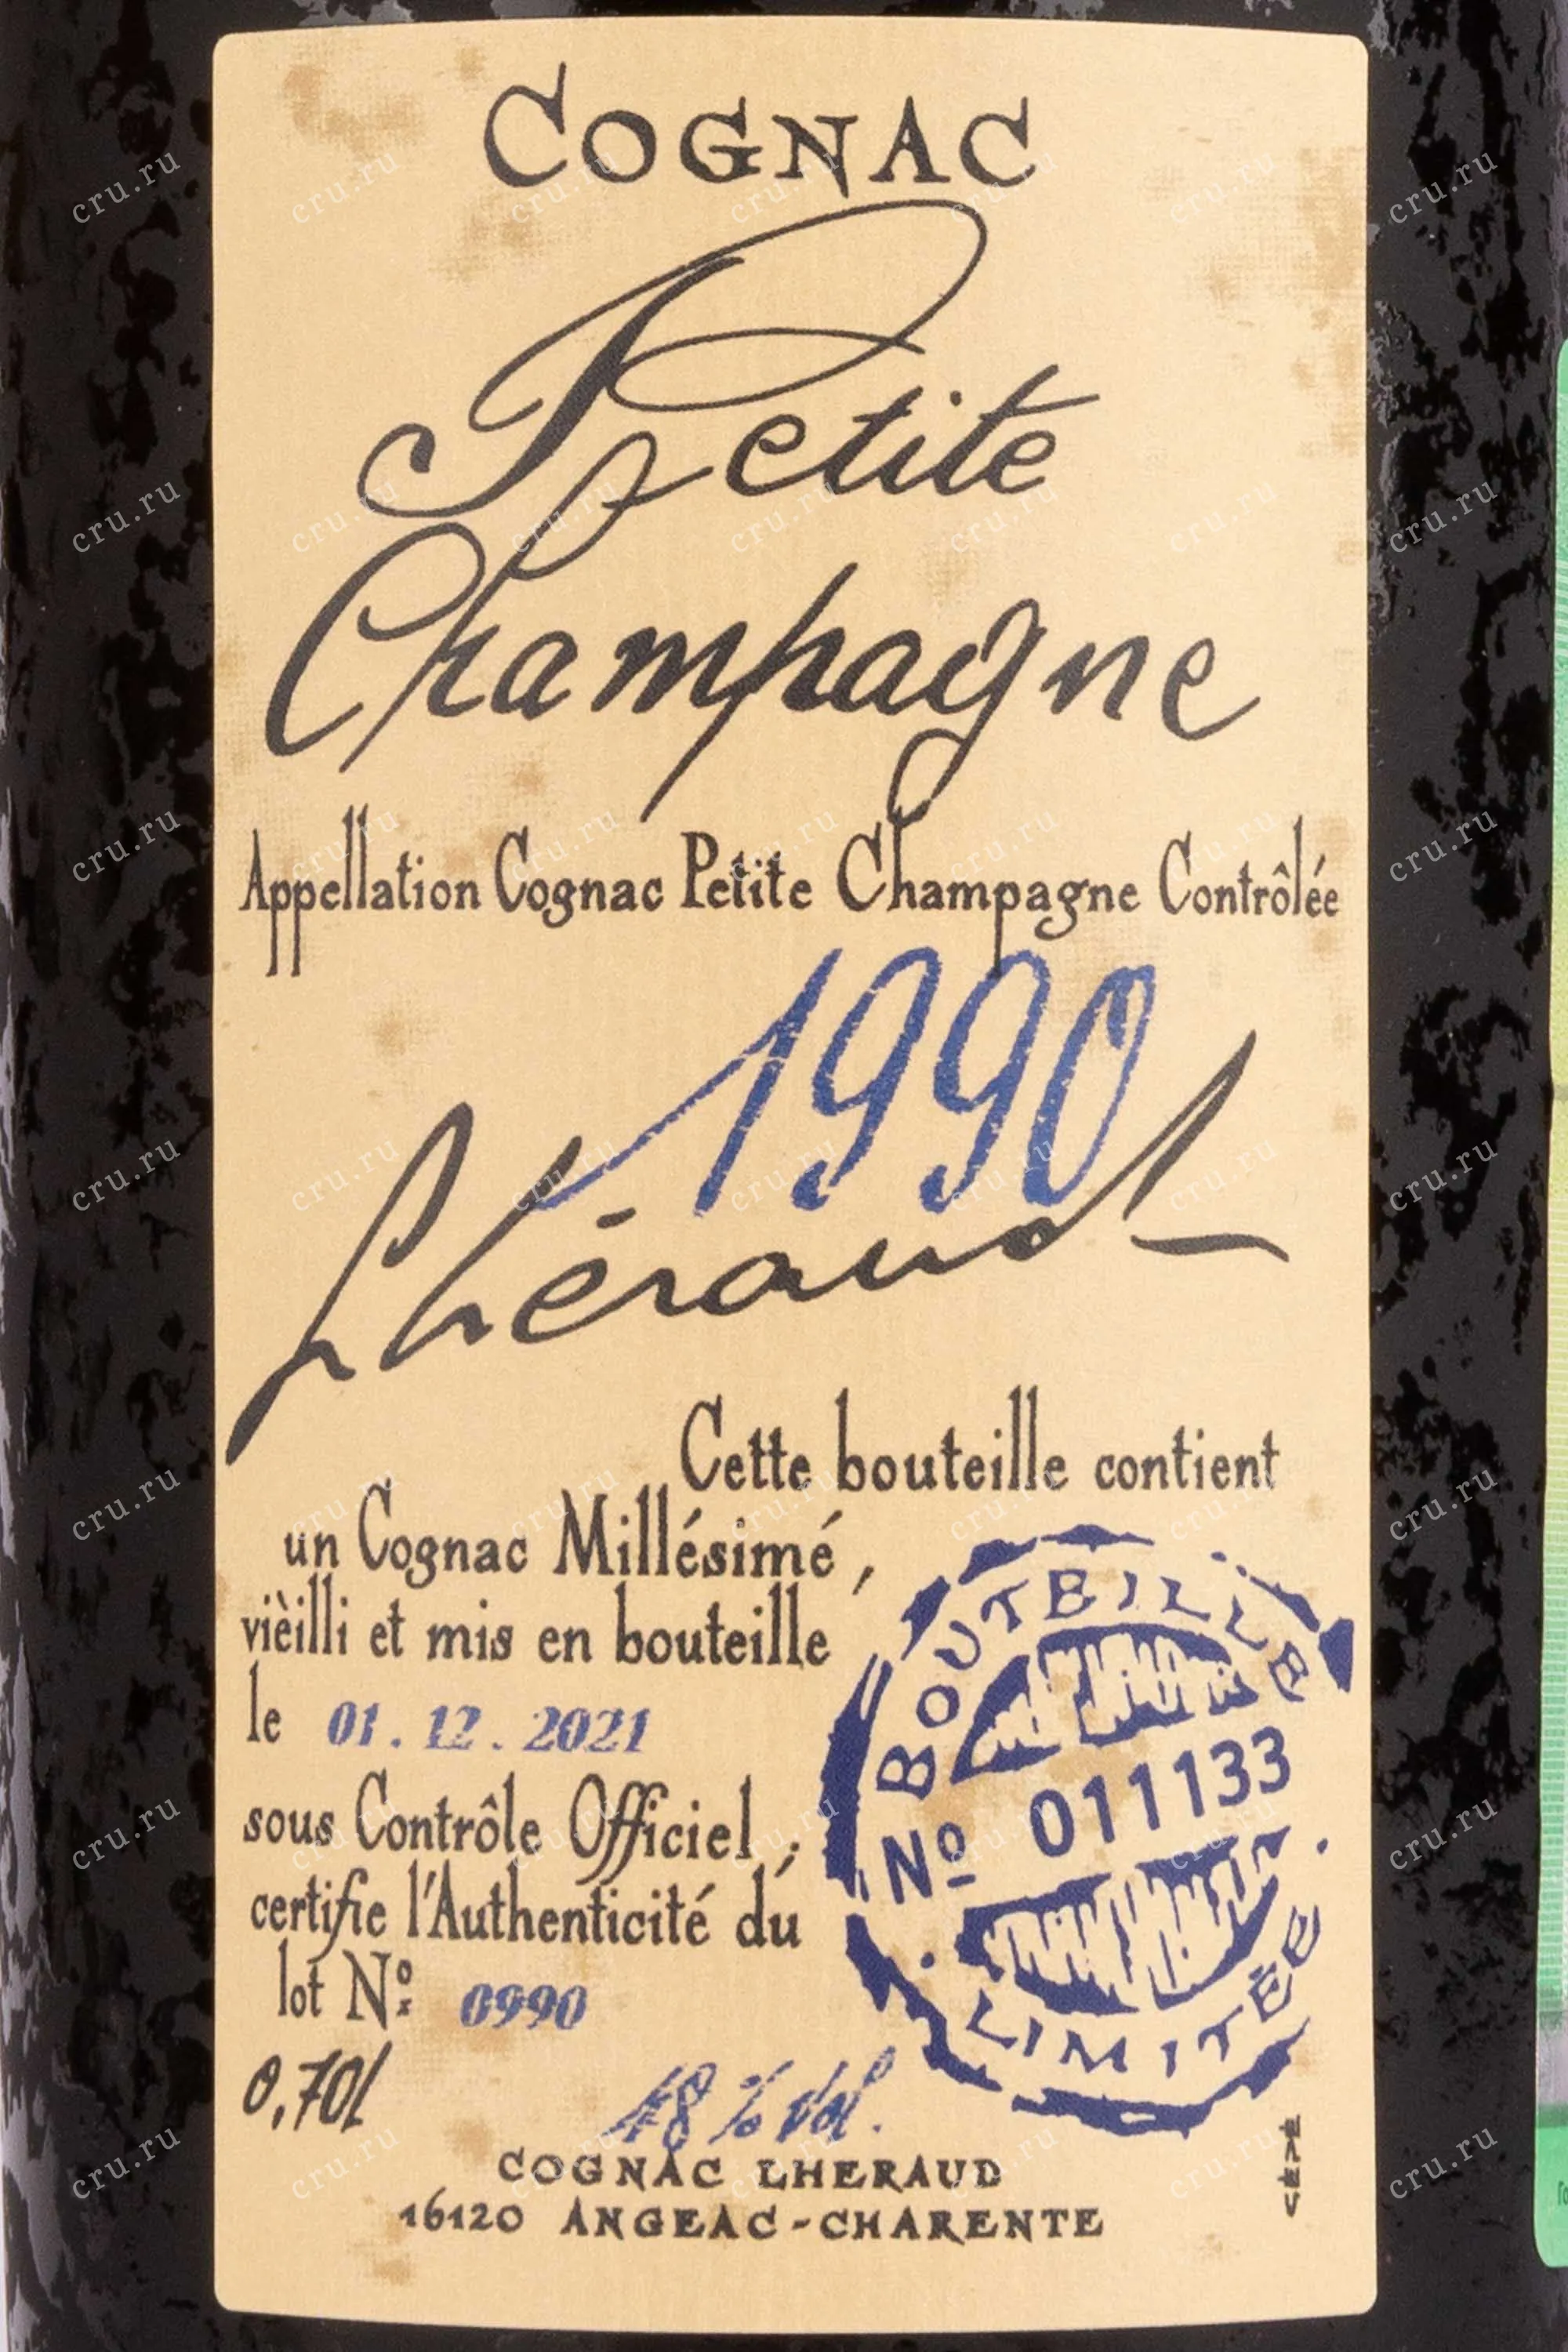 COGNAC
Petite
Champagne
Appellation Cognac Petite Champagne Contrôlée
1990
Lhéraud
Cette bouteille contient
un Cognac Millésimé,
vièilli et mis en bouteille
le 01.12.2021
sous Contrôle Officiel,
certifie l'Authenticité du
lot Nº: 0990
BOUTEILLE
Nº 011133
LIMITÉE
0,70l
48 % Vol.
COGNAC LHERAUD
16120 ANGEAC-CHARENTE
cru.ru